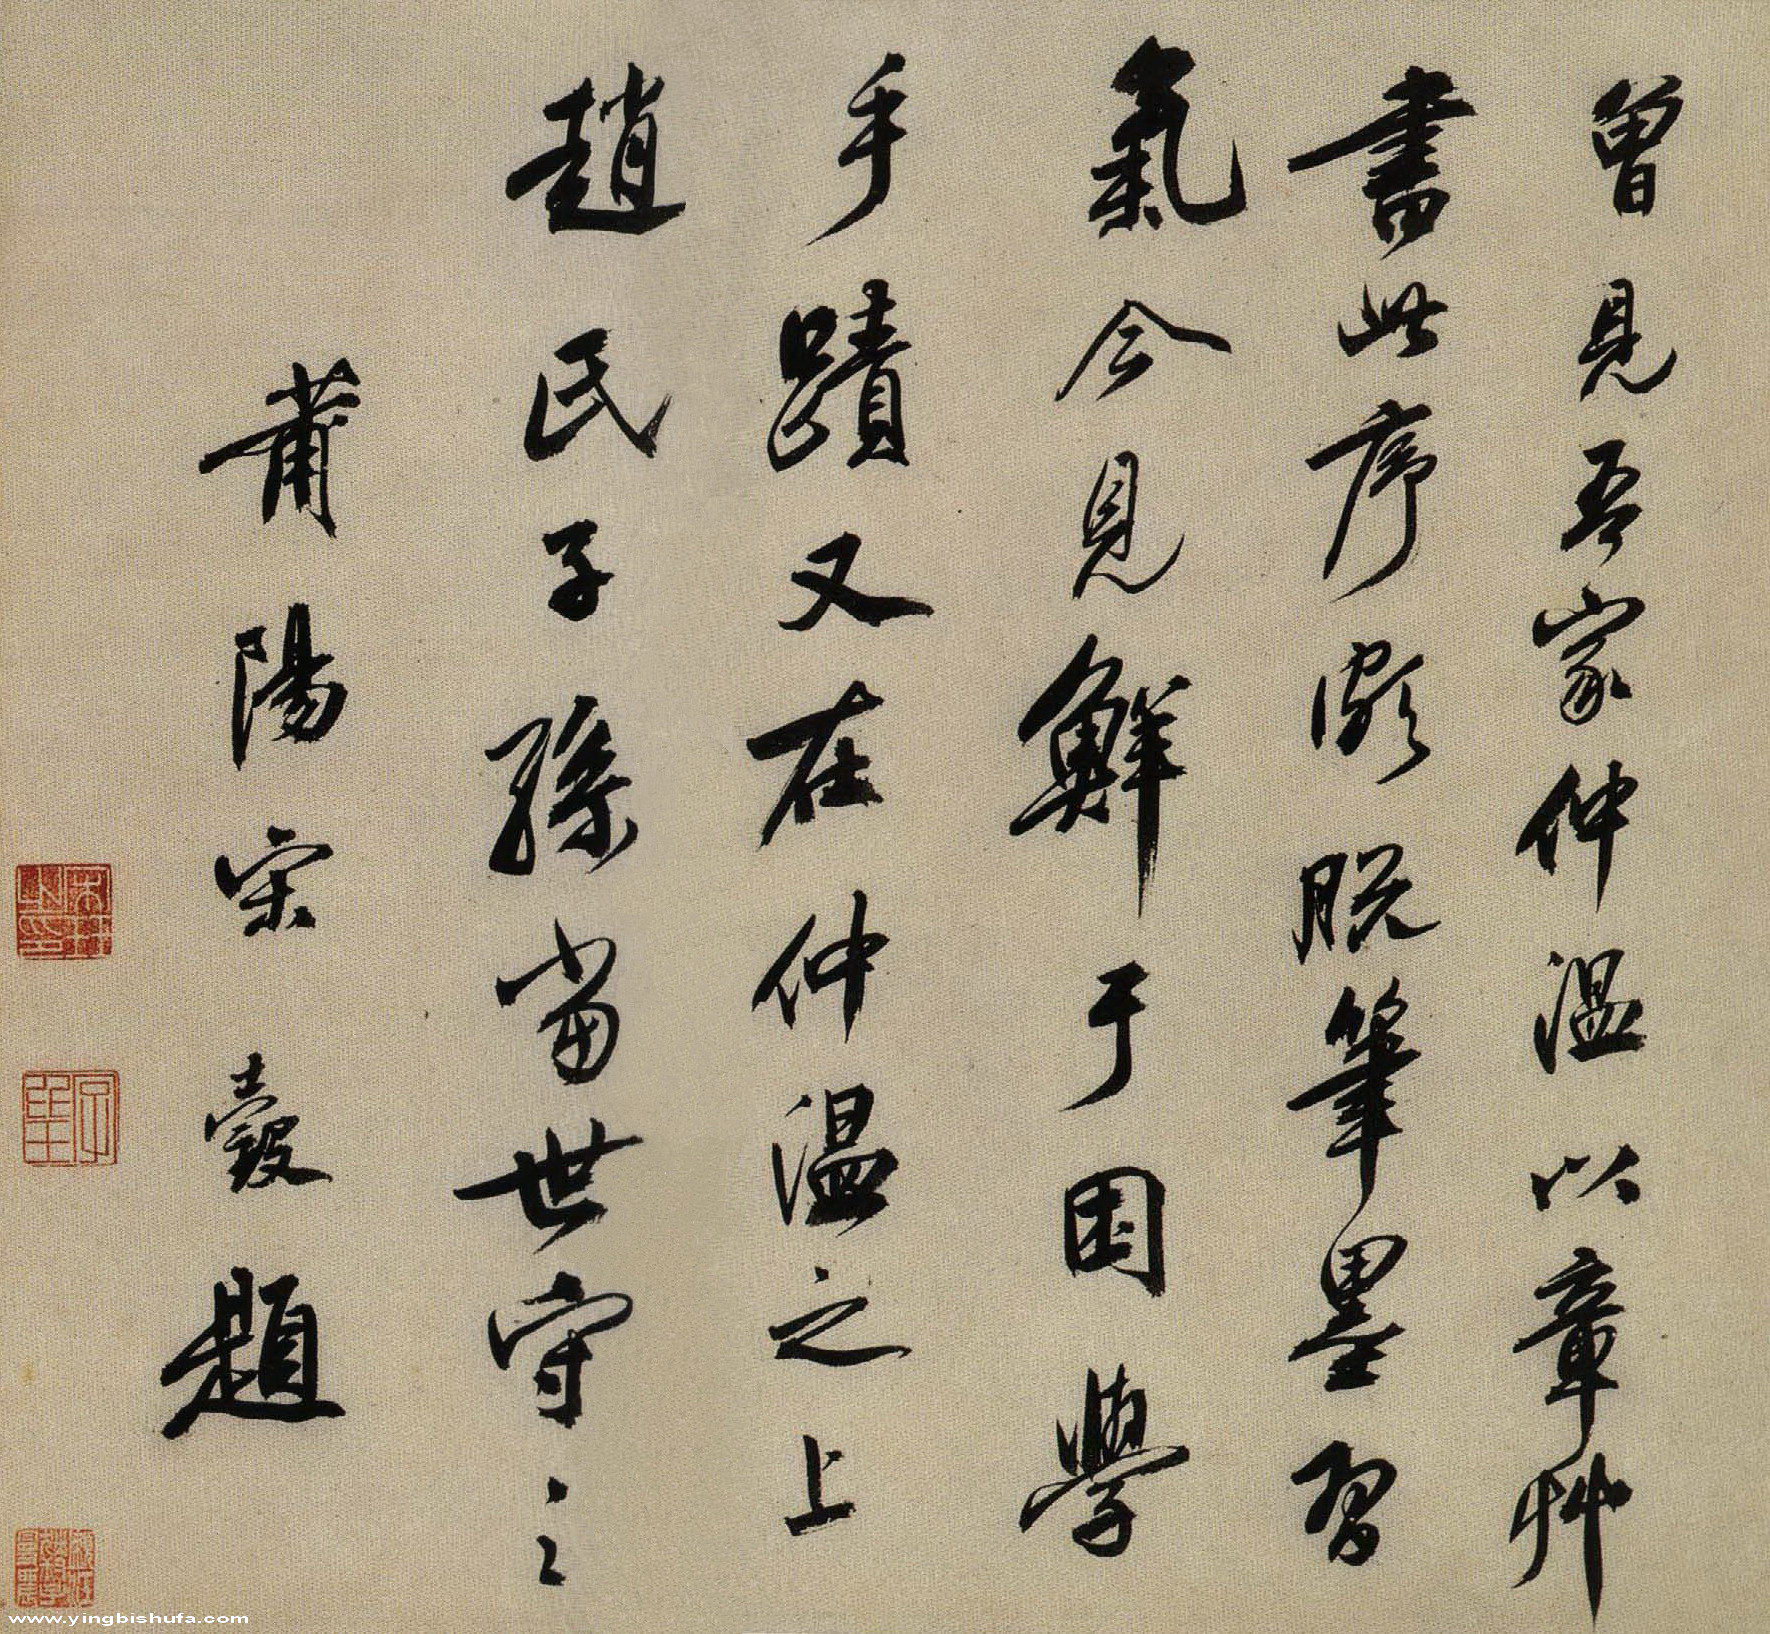 曾見吾家仲溫以章艸
書此序頗脫筆墨習
氣今見鮮于困學
手蹟又在仲溫之上
趙民子孫當世守之
莆陽宋穀題
www.yingbishufa.com